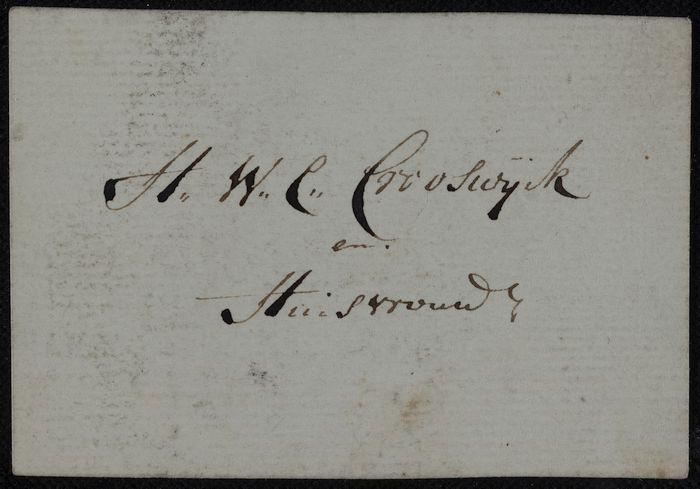 H. W. C. Crooswijk
en.
Huisvrouw